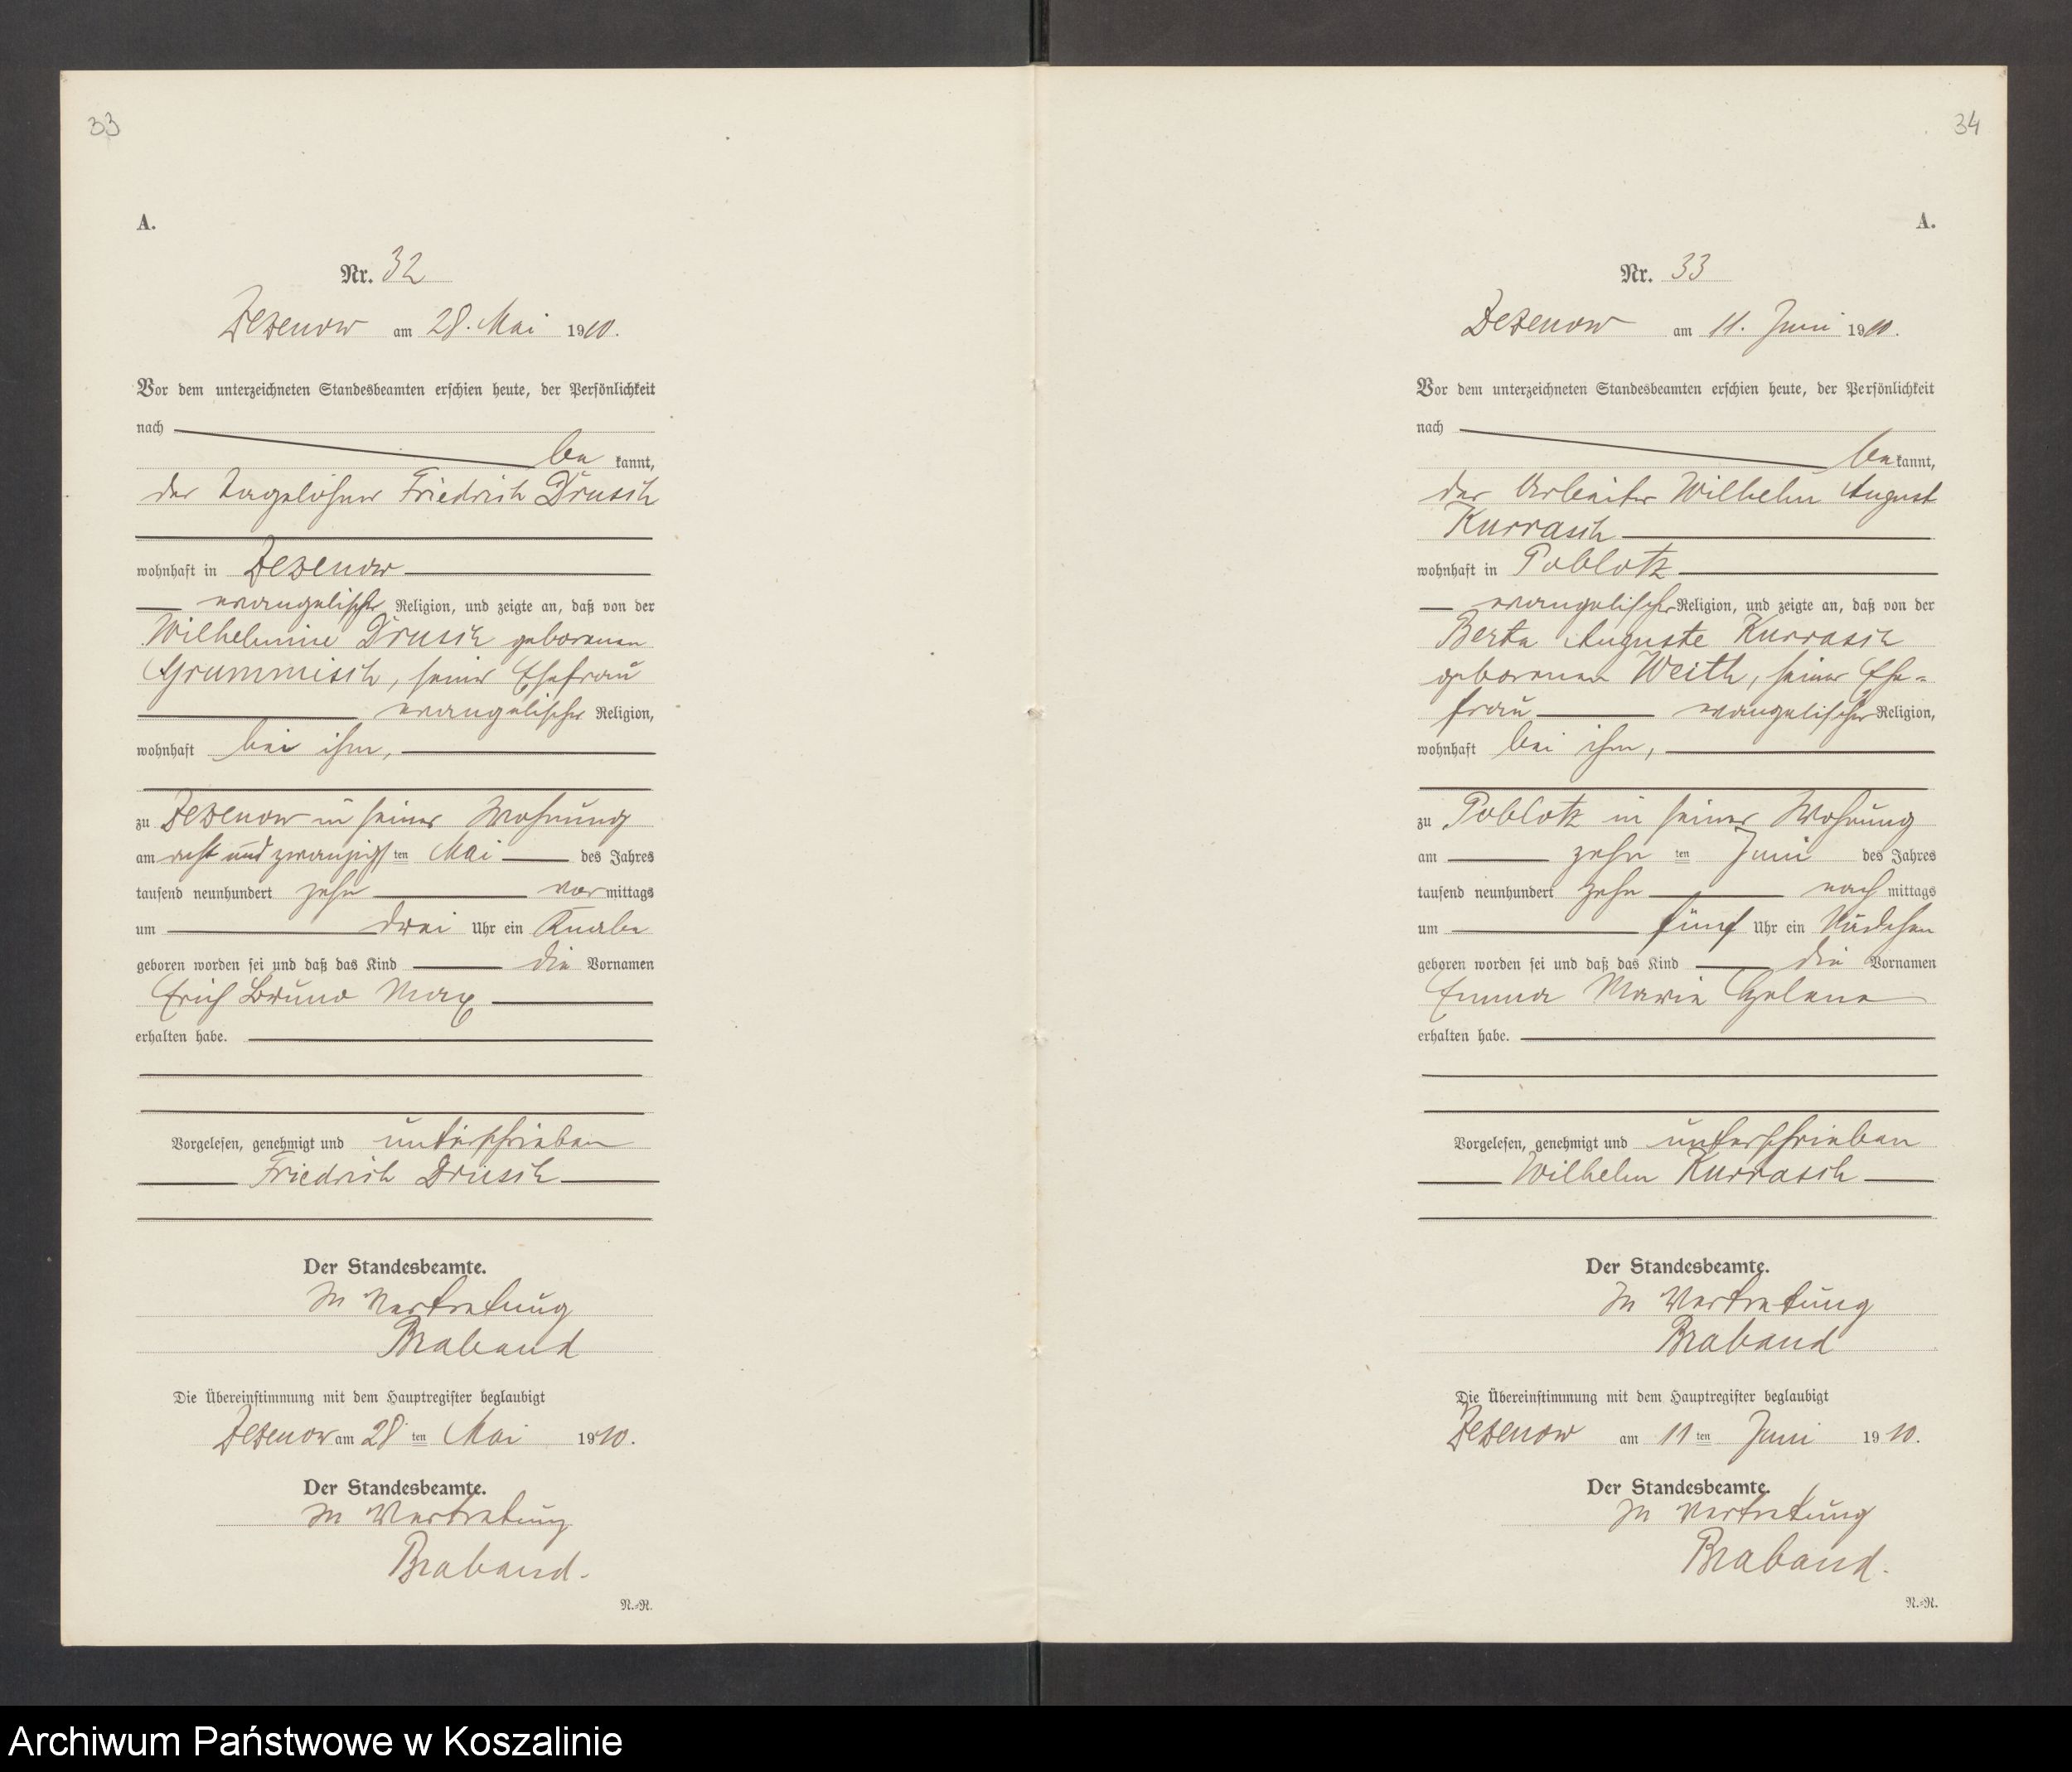 33
A.
Nr. 32
Dezenow am 28. Mai 1910.
Vor dem unterzeichneten Standesbeamten erschien heute, der Persönlichkeit
nach
be kannt,
der Tagelöhner Friedrich Drusch
wohnhaft in Dezenow
evangelischer Religion, und zeigte an, daß von der
Wilhelmine Drusch geborenen
Grummisch, seiner Ehefrau
evangelischer Religion,
wohnhaft bei ihm,
zu Dezenow in seiner Wohnung
am acht und zwanzigsten Mai des Jahres
tausend neunhundert zehn vormittags
um drei Uhr ein Knabe
geboren worden sei und daß das Kind die Vornamen
Erich Bruno Max
erhalten habe.
Vorgelesen, genehmigt und unterschrieben
Friedrich Drusch
Der Standesbeamte.
In Vertretung
Braband
Die Übereinstimmung mit dem Hauptregister beglaubigt
Dezenow am 28 ten Mai 1910.
Der Standesbeamte.
In Vertretung
Braband.
N.=N.
34
A.
Nr. 33
Dezenow am 11. Juni 1910.
Vor dem unterzeichneten Standesbeamten erschien heute, der Persönlichkeit
nach
be kannt,
der Arbeiter Wilhelm August
Kurrasch
wohnhaft in Poblotz
evangelischer Religion, und zeigte an, daß von der
Berta Auguste Kurrasch
geborenen Weith, seiner Ehe=
frau evangelischer Religion,
wohnhaft bei ihm,
zu Poblotz in seiner Wohnung
am zehn ten Juni des Jahres
tausend neunhundert zehn nach mittags
um fünf Uhr ein Mädchen
geboren worden sei und daß das Kind die Vornamen
Emma Marie Helene
erhalten habe.
Vorgelesen, genehmigt und unterschrieben
Wilhelm Kurrasch
Der Standesbeamte.
In Vertretung
Braband
Die Übereinstimmung mit dem Hauptregister beglaubigt
Dezenow am 11 ten Juni 1910.
Der Standesbeamte.
In Vertretung
Braband.
N.=N.
Archiwum Państwowe w Koszalinie